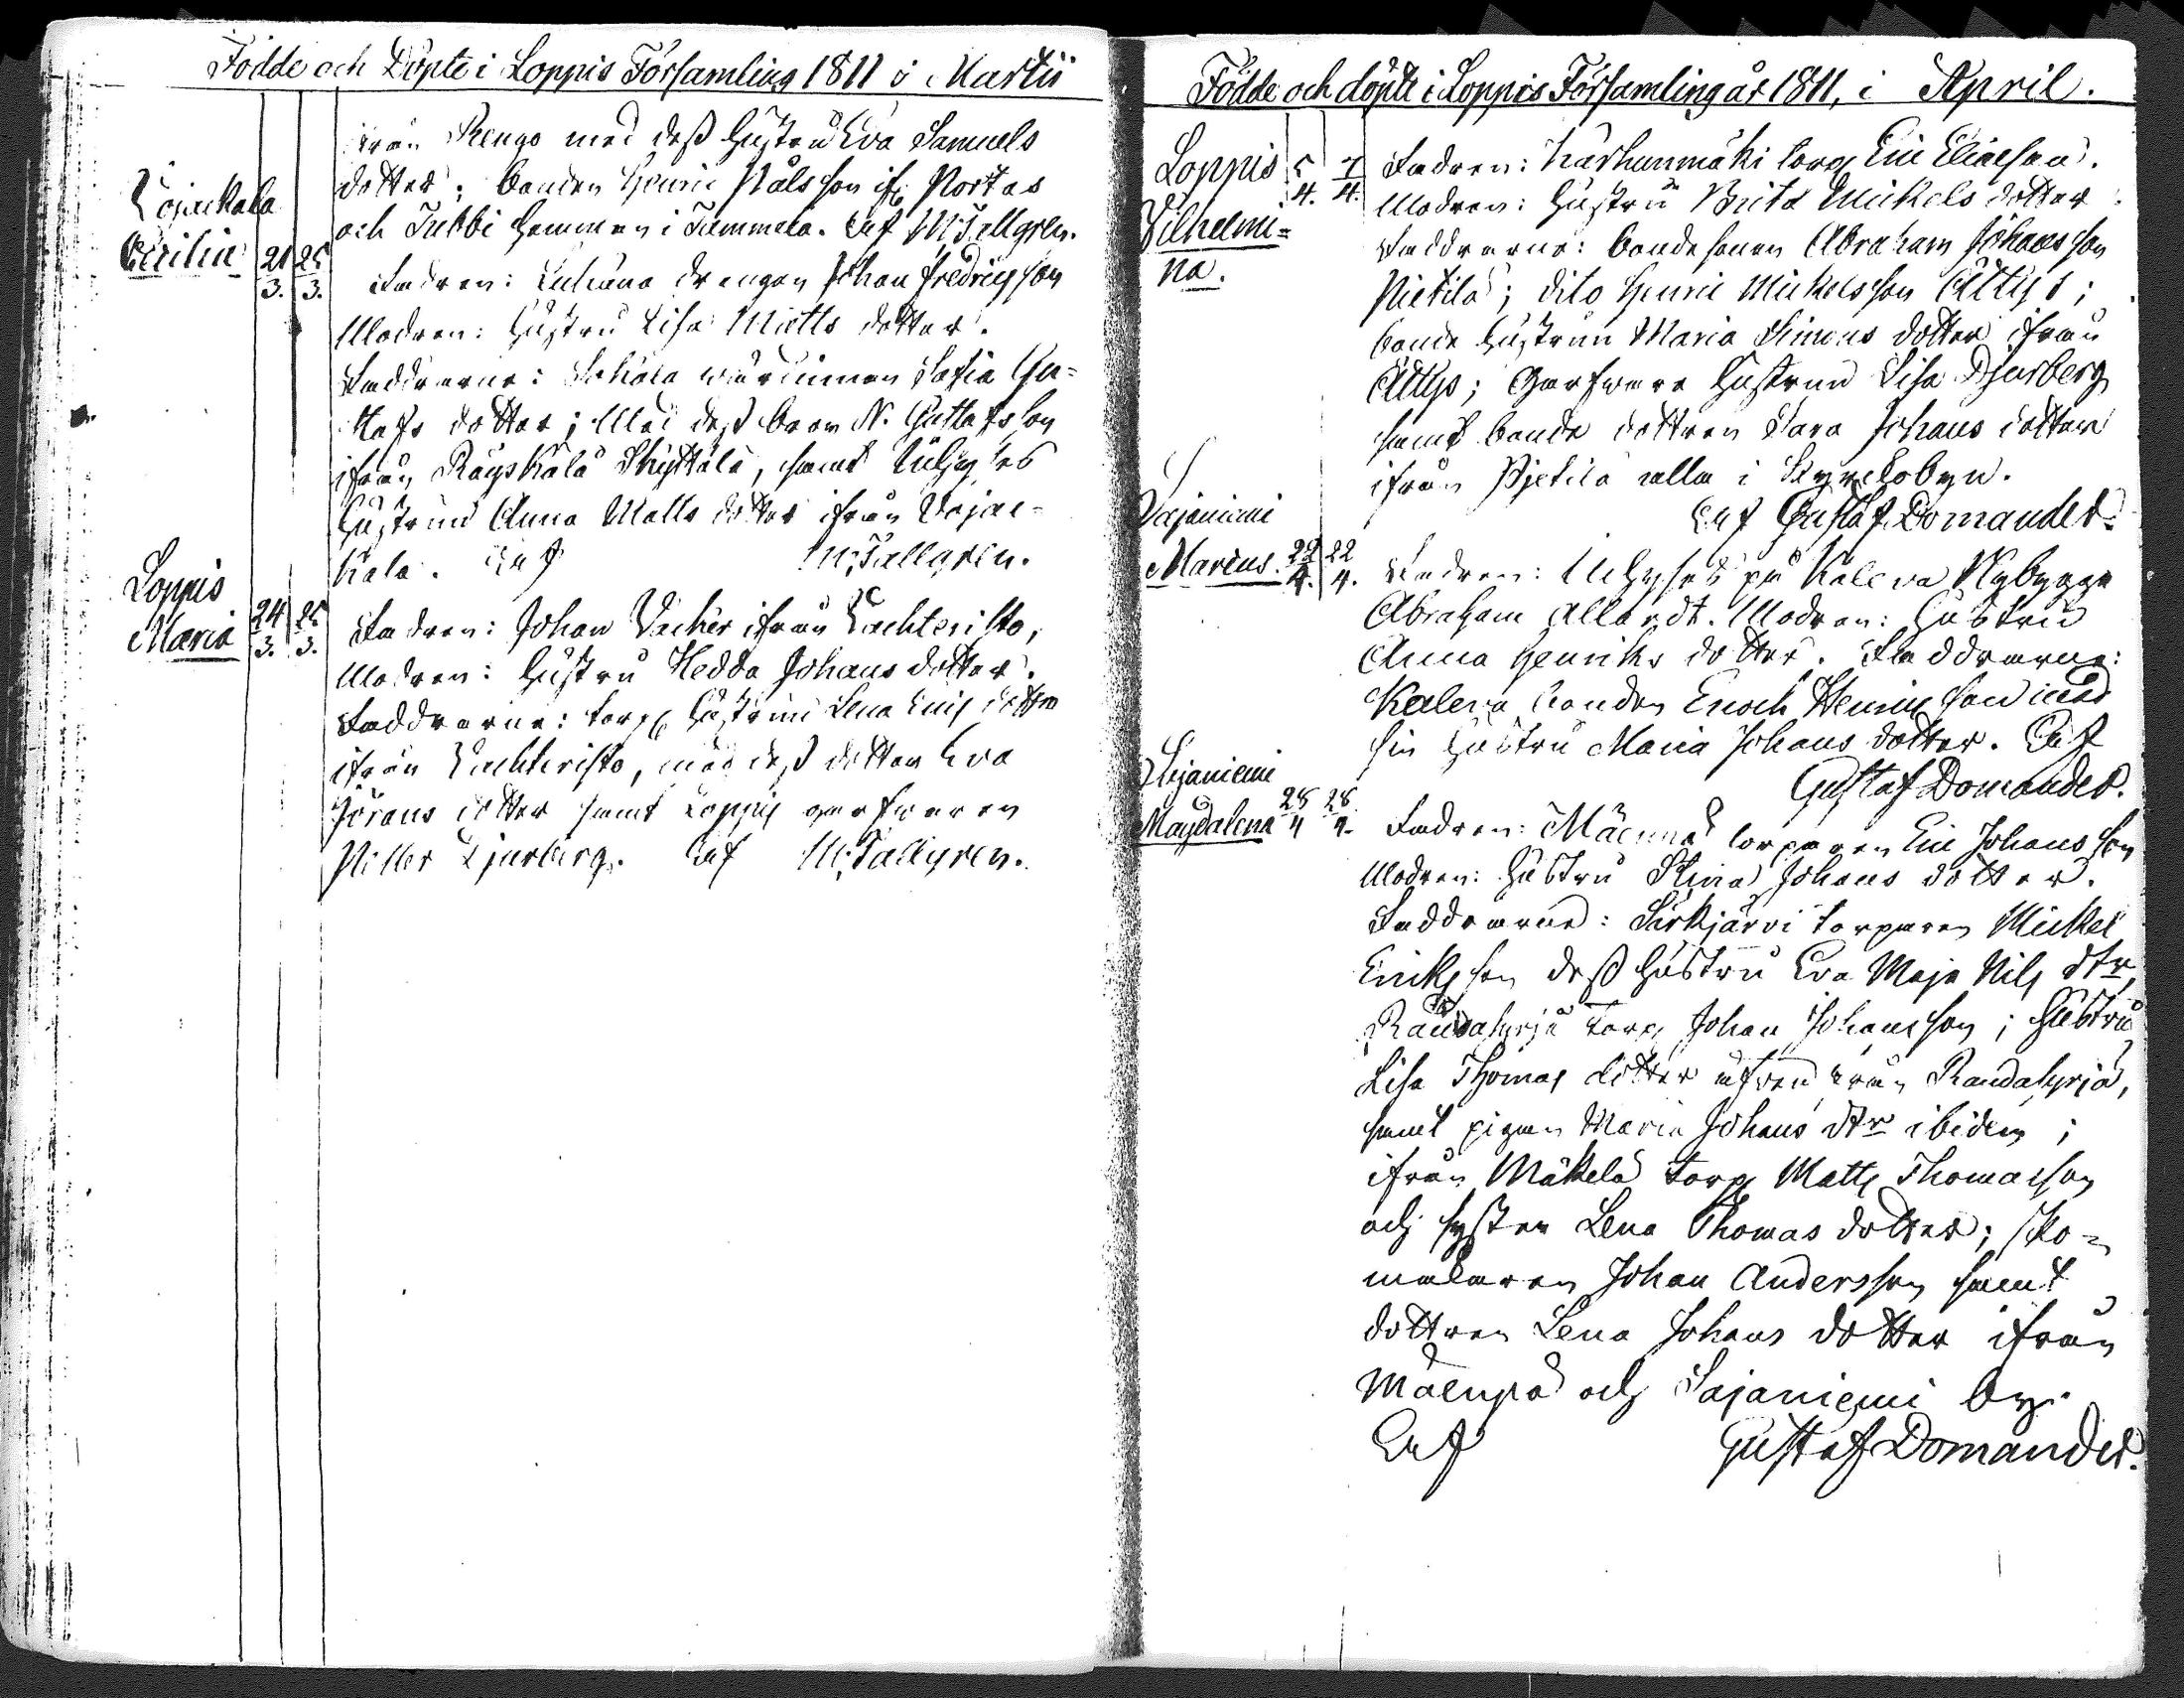 Födde och Döpte i Loppis Församling 1811 i Martii
från Rengo med dess Hustru Eva Samuels
dotter; bonden Henric Pålsson if. Portas
och Jukbi hemman i Tammela. Af M. Tallgren.
Cecilia 21/3. 25/3.
Fadren: drengen Johan Fredricsson
Modren: Hustru Lisa Matts dotter.
Faddrarne: wärdinnan Sofia Gu=
stafs dotter; Med dess bror N. Gustafsson
ifrån Räyskälä Skyttälä, samt
Hustrun Anna Matts dotter ifrån Vojac=
kala. Af M. Tallgren.
Loppis
Maria 24/3. 25/3.
Fadren: Johan ifrån
Modren: Hustru Hedda Johans dotter.
Faddrarne: torp. Hustrun Lena Erics dotter
ifrån , med dess dotter Eva
Görans dotter samt Loppis garfvaren
Petter Djurberg. Af M. Tallgren.
Födde och döpte i Loppis Församling år 1811, i April.
Loppis 5/4. 7/4.
Vilhelmi=
na.
Fadren: Karhunmäki torp. Eric Eliaeson.
Modren: Hustru Brita Mickels dotter.
Faddrarne: bondesonen Abraham Johansson
Pietilä; dito Henric Mickelsson Ältys;
bonde Hustrun Maria Simons dotter ifrån
Ältys; Garfvare Hustrun Lisa Djurberg
samt bonde dottren Sara Johans dotter
ifrån Pjetilä alla i Kyrkobyn.
Af Gustaf Domander.
Sajaniemi
Marcus. 22/4. 22/4.
Fadren: på Kaleva Nybygge
Abraham Allardt. Modren: Hustru
Anna Henriks dotter. Faddrarne:
Kaleva bonden Enoch Henricsson med
sin Hustru Maria Johans dotter. Af
Gustaf Domander.
Sajaniemi
Magdalena 28/4 28/4.
Fadren: torparen Eric Johansson
Modren: Hustru Stina Johans dotter.
Faddrarne: Särkjärvi torparen Mickel
Ericksson dess Hustru Eva Maja Nils dtr,
torp. Johan Johansson; Hustru
Lisa Thomas dotter även från Raudahyrjä,
samt pigan Maria Johans dtr ibidem;
ifrån Mäkelä torp. Matts Thomasson
och syster Lena Thomas dotter; sko=
makaren Johan Andersson samt
dottren Lena Johans dotter ifrån
Mäenpä och Sajaniemi by.
Af Gustaf Domander.